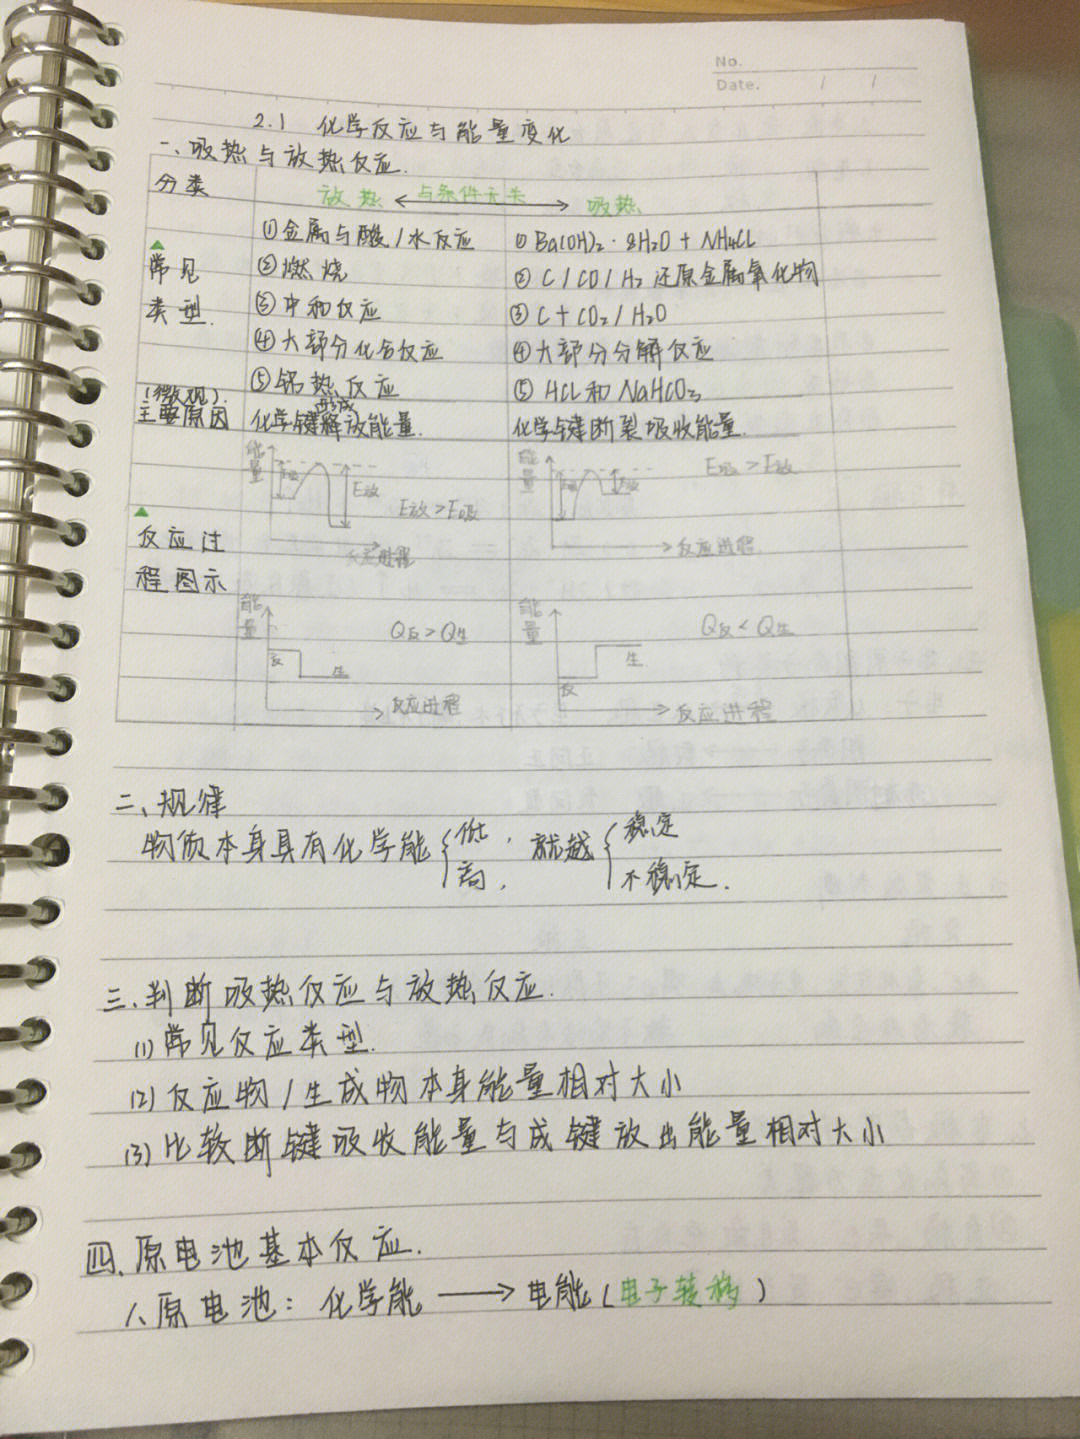 No.
Date. / /
2.1 化学反应与能量变化
一、吸热与放热反应.
分类 放热 ←与条件无关→ 吸热
▲常见类型.
①金属与酸/水反应 ①Ba(OH)₂·8H₂O + NH₄CL
②燃烧 ②C/CO/H₂还原金属氧化物
③中和反应 ③C+CO₂/H₂O
④大部分化合反应 ④大部分分解反应
⑤铝热反应 ⑤HCL和NaHCO₃
(微观).
主要原因 化学键形成释放能量. 化学键断裂吸收能量.
▲反应过程图示
能量 E吸 E放 E放>E吸 反应进程
能量 E吸 E放 E吸>E放 反应进程
能量 反 生 Q反>Q生 反应进程
能量 反 生 Q反<Q生 反应进程
二、规律
物质本身具有化学能{低, 就越{稳定
高, 不稳定.
三、判断吸热反应与放热反应.
(1)常见反应类型.
(2)反应物/生成物本身能量相对大小
(3)比较断键吸收能量与成键放出能量相对大小
四、原电池基本反应.
1、原电池: 化学能 → 电能(电子转移)